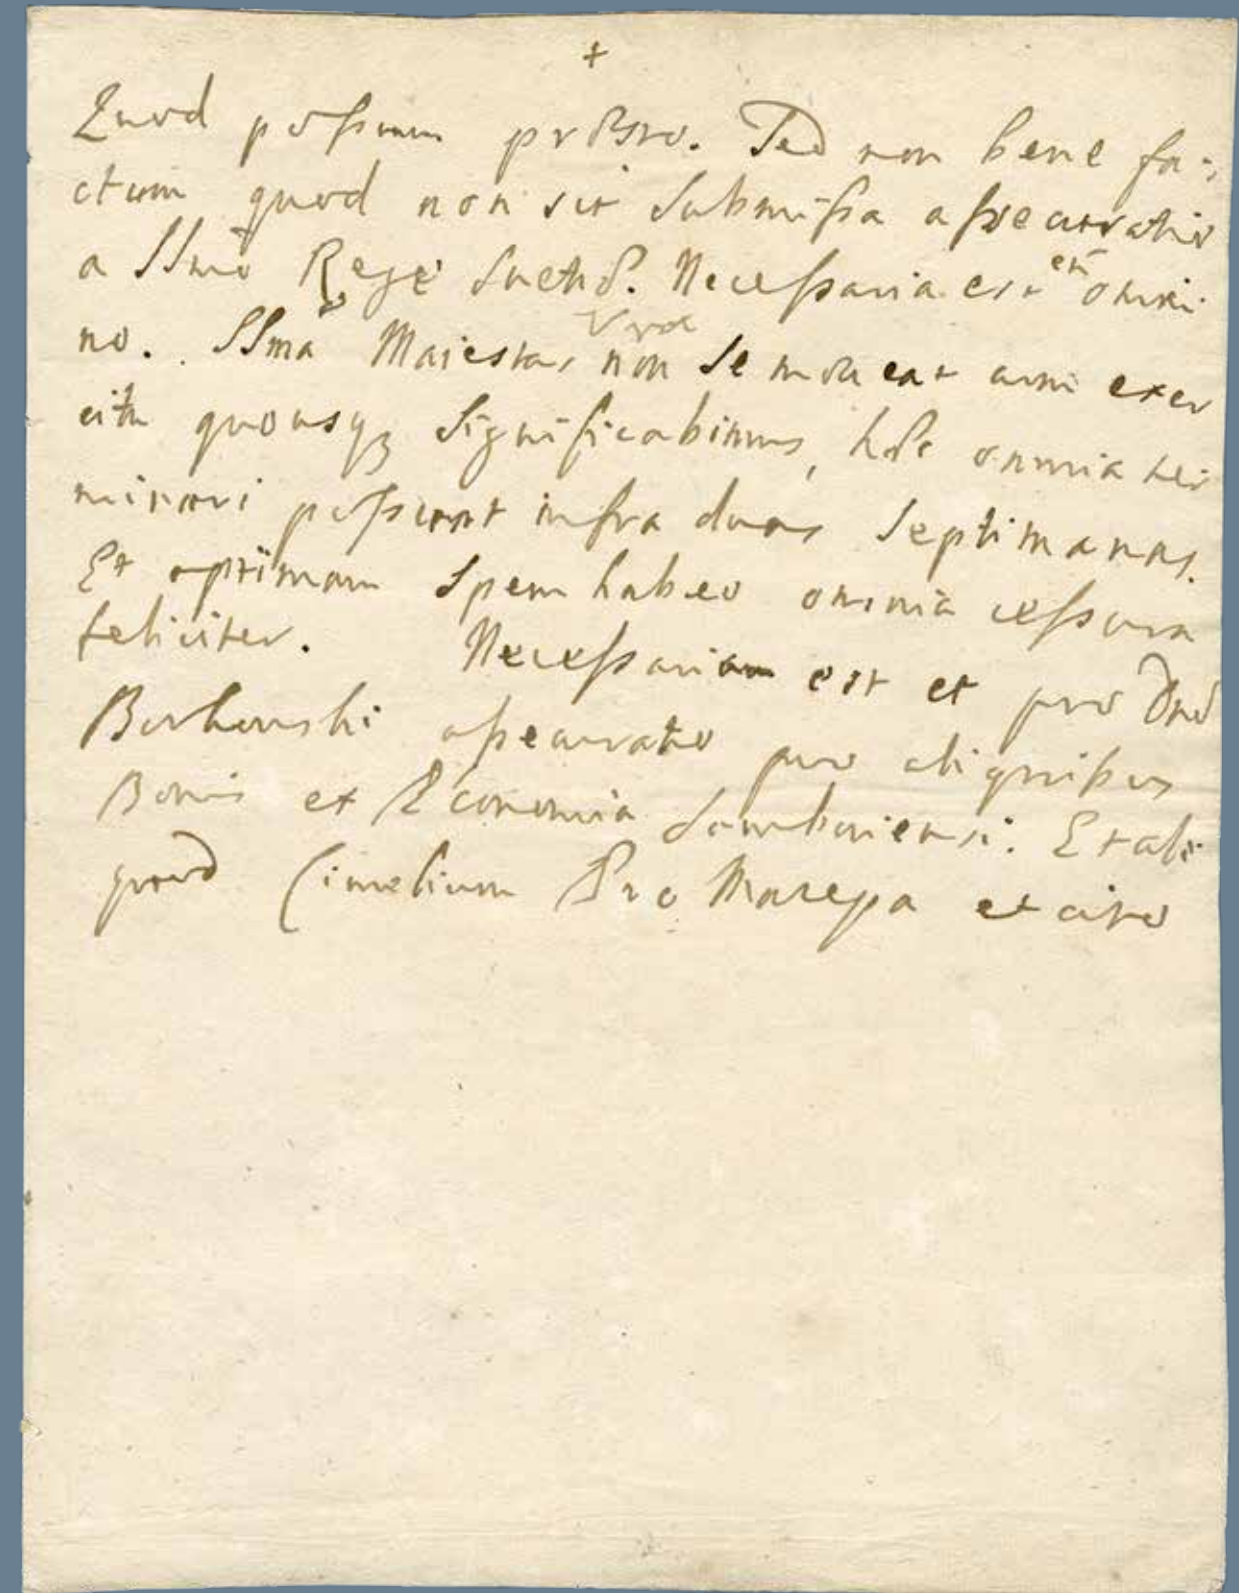 +
Quod possum procuro. Sed non bene fa-
ctum quod non sit submissa assecuratio
a SSmo Rege Suetiae. Necessaria est omni
no. SSma Maiestas Vra non se moveat cum exer
citu quousq; significabimus, hoc omnia ter
minari possunt infra duas septimanas.
Et optimam spem habeo omnia cessura
feliciter. Necessaria est et pro Dno
assecuratio pro aliquibus
Bonis et Economia Samboriensi. Et ali
quod Cimelium Pro Mazepa et cito